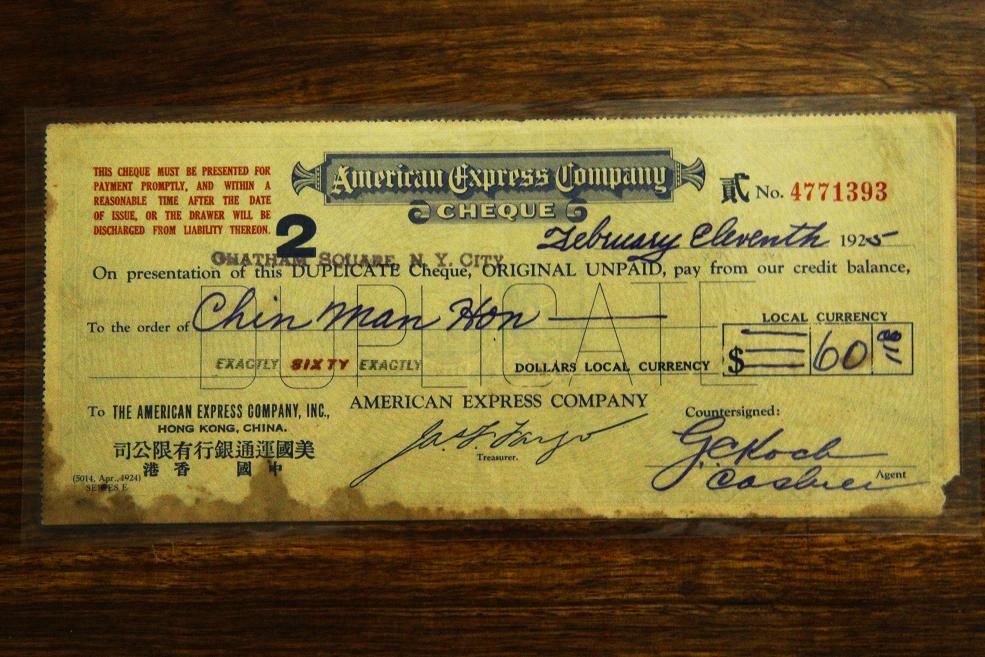 American Express Company
CHEQUE
THIS CHEQUE MUST BE PRESENTED FOR
PAYMENT PROMPTLY, AND WITHIN A
REASONABLE TIME AFTER THE DATE
OF ISSUE, OR THE DRAWER WILL BE
DISCHARGED FROM LIABILITY THEREON.
貳 No. 4771393
2
February Eleventh 1925
CHATHAM SQUARE, N. Y. CITY
On presentation of this DUPLICATE Cheque, ORIGINAL UNPAID, pay from our credit balance,
DUPLICATE
To the order of Chin Man Hon
LOCAL CURRENCY
EXACTLY SIXTY EXACTLY DOLLARS LOCAL CURRENCY $ 60 00
To THE AMERICAN EXPRESS COMPANY, INC.,
HONG KONG, CHINA.
美國運通銀行有限公司
中國香港
(5014, Apr., 1924)
SERIES E
AMERICAN EXPRESS COMPANY
Jas F Fargo
Treasurer.
Countersigned:
G C Koch
Cashier
Agent